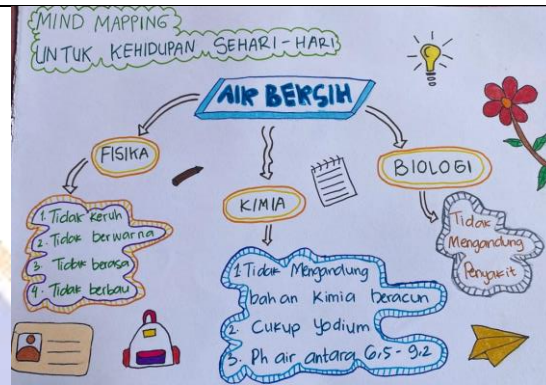 MIND MAPPING
UNTUK KEHIDUPAN SEHARI-HARI
AIR BERSIH
FISIKA
1. Tidak keruh
2. Tidak berwarna
3. Tidak berasa
4. Tidak berbau
KIMIA
1 Tidak Mengandung
bahan Kimia beracun
2. Cukup Yodium
3. Ph air antara 6,5 - 9,2
BIOLOGI
Tidak
Mengandung
Penyakit